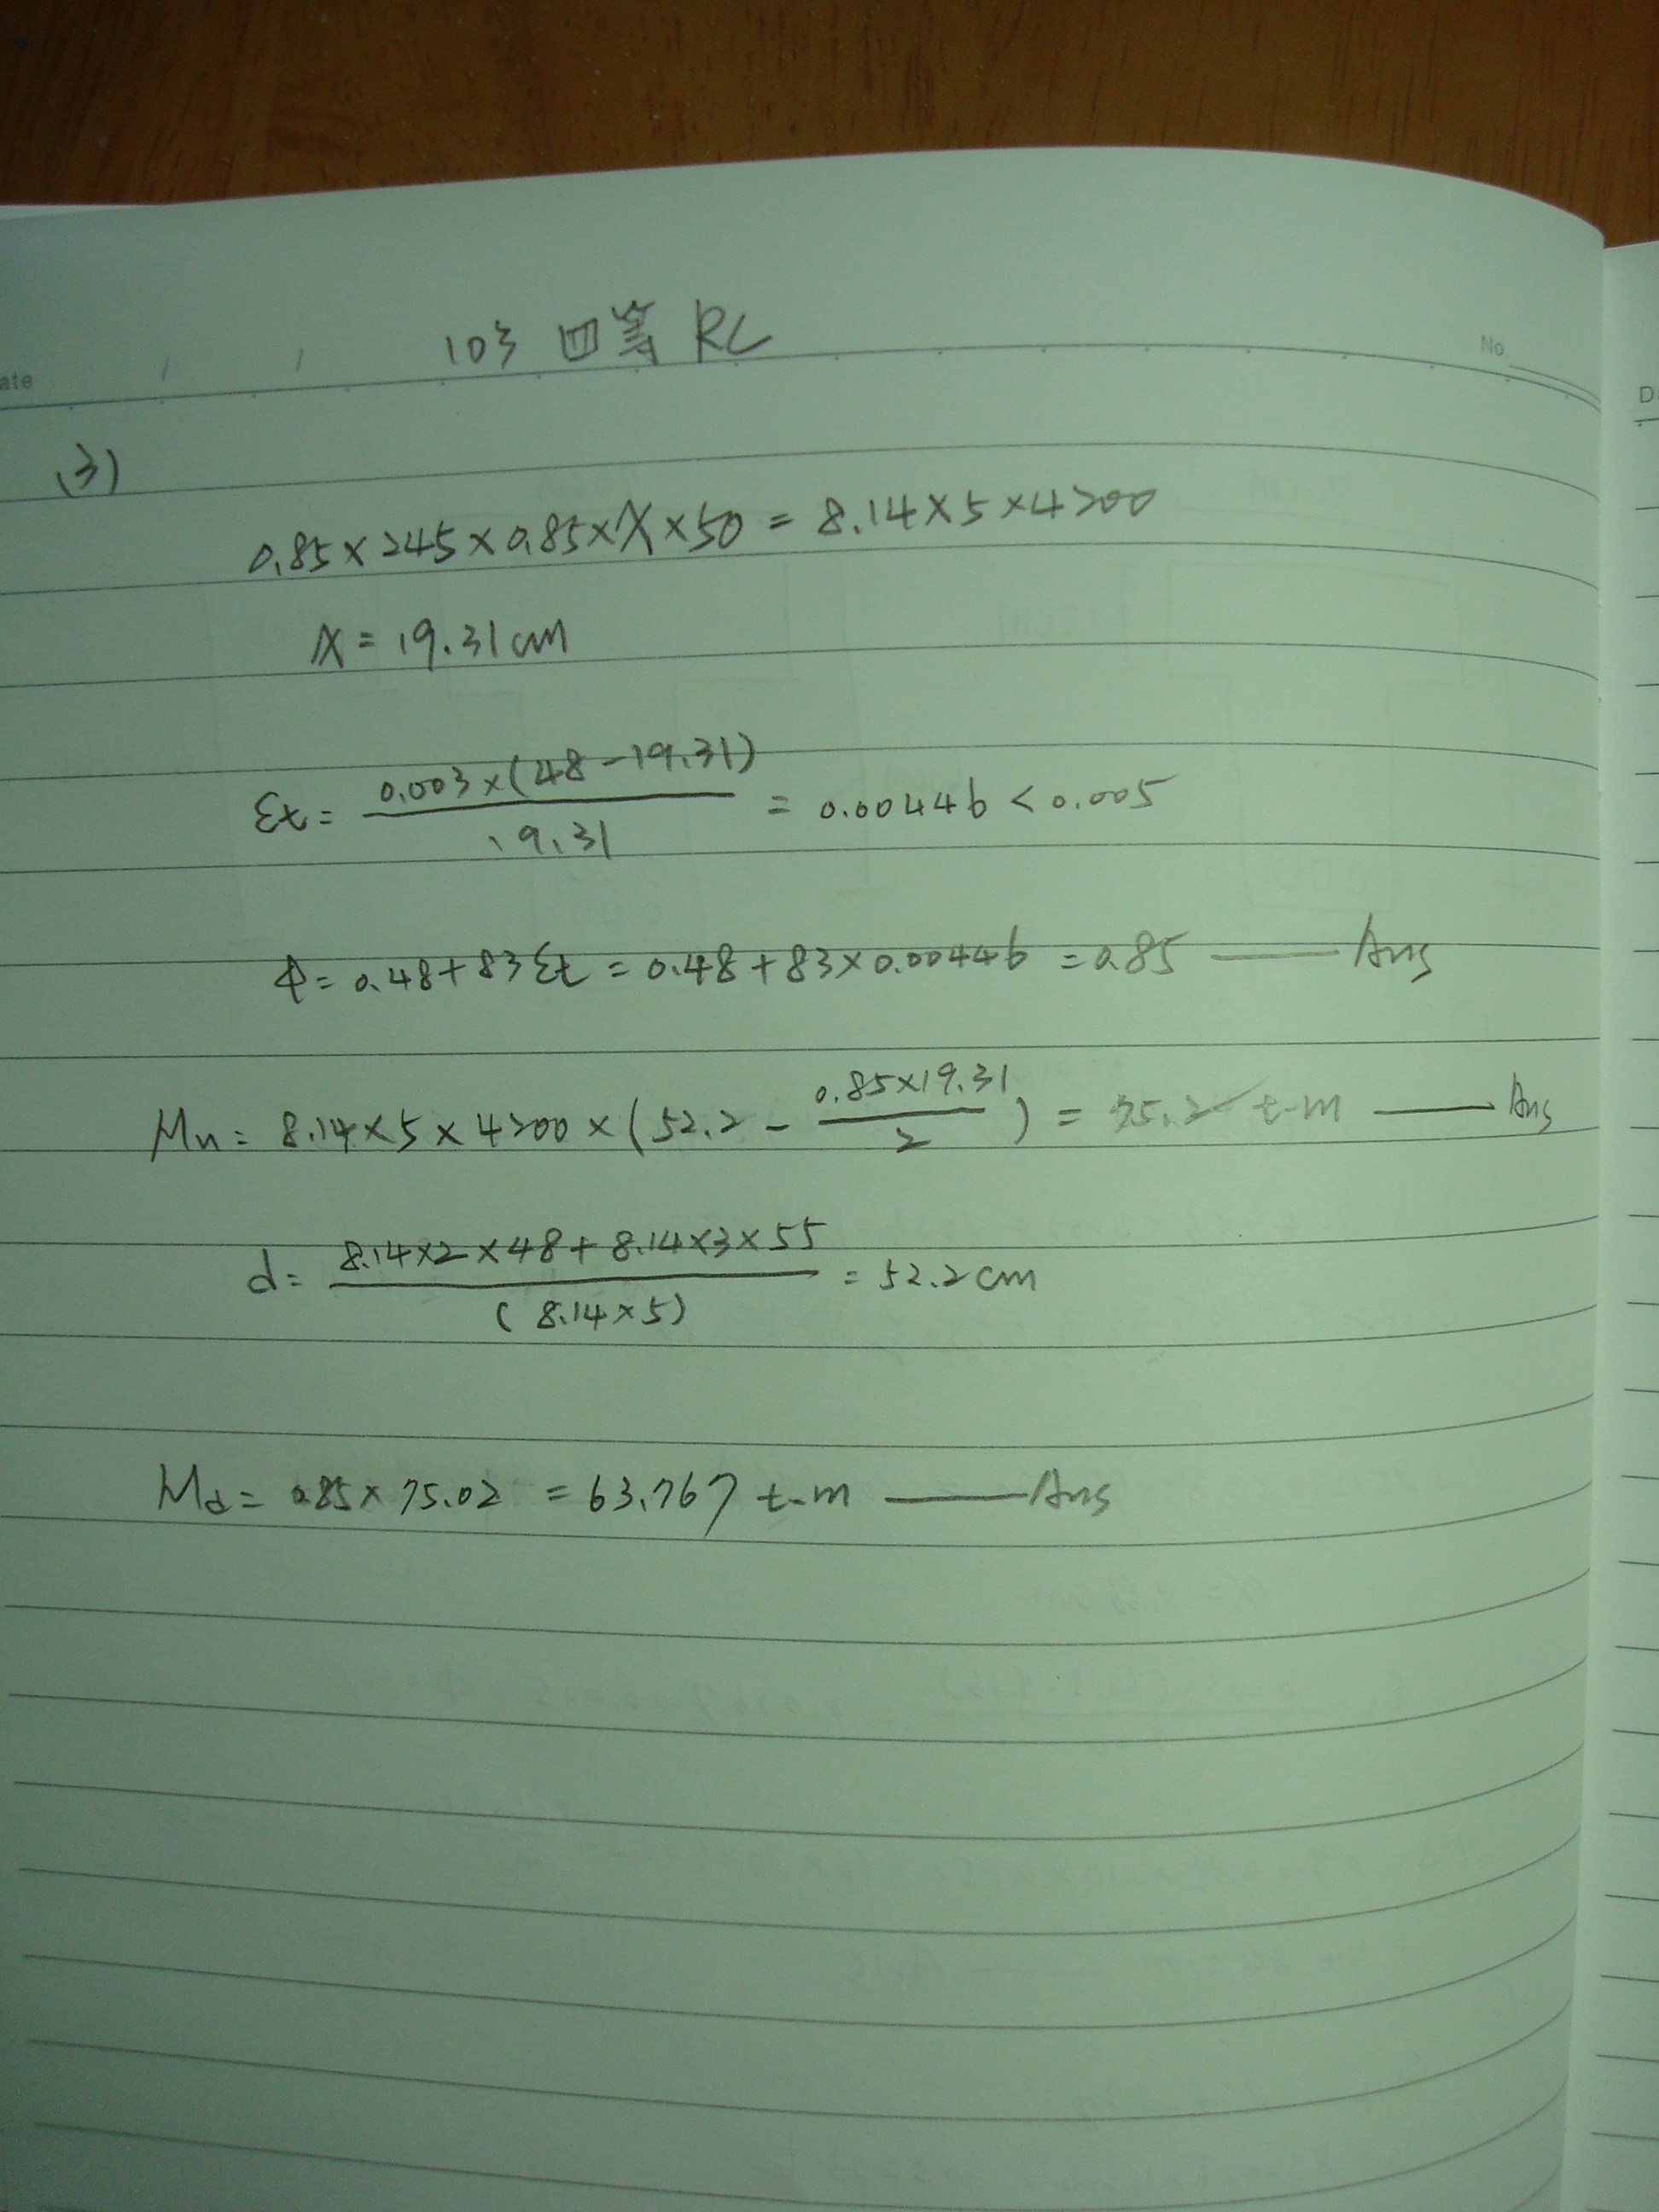 103 四等 RC
ate / / No.
D
(3)
0.85×245×0.85×X×50 = 8.14×5×4200
X = 19.31cm
εt = 0.003×(48-19.31) / 19.31 = 0.00446 < 0.005
φ = 0.48+83εt = 0.48+83×0.00446 = 0.85 —— Ans
Mn = 8.14×5×4200×(52.2 - 0.85×19.31 / 2) = 75.2 t-m —— Ans
d = 8.14×2×48+8.14×3×55 / (8.14×5) = 52.2cm
Md = 0.85×75.02 = 63.767 t-m —— Ans